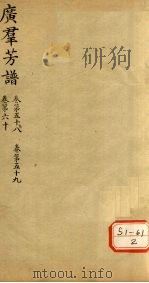 廣羣芳譜
卷第五十八
卷第五十九
卷第六十
51-61
2